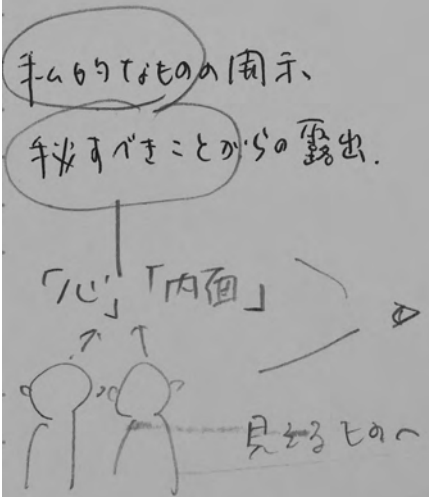 私的なものの開示、
秘すべきことがらの露出.
「心」「内面」
見えるものへ